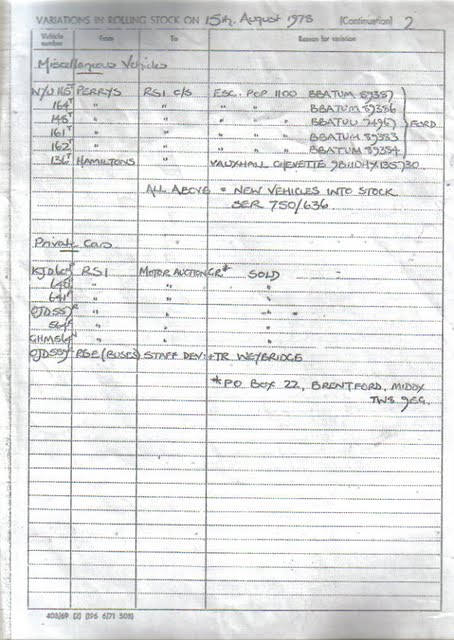 VARIATIONS IN ROLLING STOCK ON 15th. August 1978 (Continuation) 2
Vehicle number From To Reason for variation
Miscellaneous Vehicles
PERRYS RSI C/S ESC. POP 1100 BBATUM 89387
164T " " " " BBATUM 89386
145T " " " " " FORD
161T " " " " " BBATUM 89383
162T " " " " BBATUM 89384
136T HAMILTONS " VAUXHALL CHEVETTE
ALL ABOVE = NEW VEHICLES INTO STOCK
SER 750/636.
Private Cars
RSI MOTOR AUCTION GR* SOLD
648 " " "
641 " " "
" " "
564 " " "
" " "
RGE (BUSES) STAFF DEV: TR WEYBRIDGE
*PO BOX 22, BRENTFORD, MIDDX
TW8 9EG.
403/69 (2) (196 6/71 508)